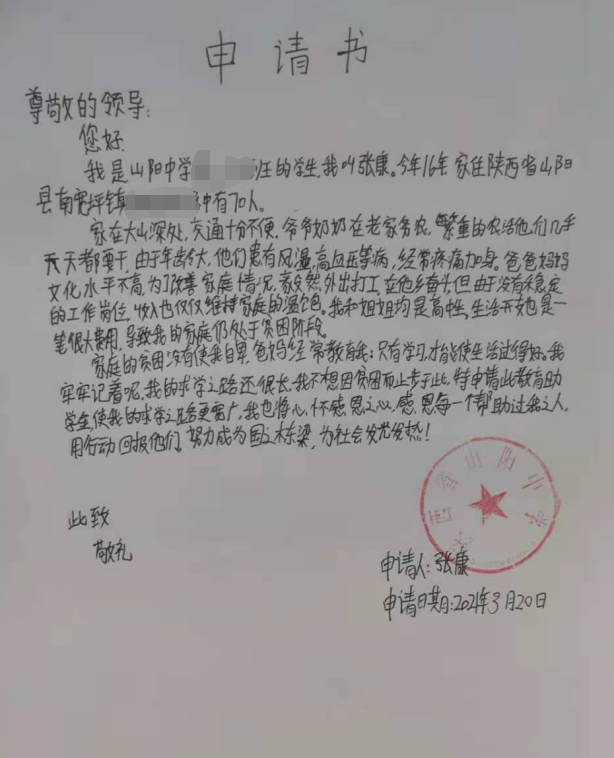 申请书
尊敬的领导:
您好
我是山阳中学 任的学生,我叫张康。今年16年 家住陕西省山阳
县南宽坪镇 中有70人。
家在大山深处,交通十分不便,爷爷奶奶在老家务农,繁重的农活他们几乎
天天都要干,由于年龄大,他们患有风湿,高血压等病,经常疼痛加身。爸爸妈妈
文化水平不高,为了改善家庭情况,毅然外出打工,在他乡奋斗,但由于没有稳定
的工作岗位,收入也仅仅维持家庭的温饱。我和姐姐均是高中生,生活开支也是一
笔很大费用,导致我的家庭仍处于贫困阶段。
家庭的贫困没有使我自卑,爸妈经常教育我:只有学习才能使生活过得好。我
牢牢记着呢,我的求学之路还很长,我不想因贫困而止步于此,特申请此教育助
学金,使我的求学之路更宽广,我也将心怀感恩之心,感恩每一个帮助过我之人,
用行动回报他们,努力成为国之栋梁,为社会发光发热!
此致
敬礼
山阳中学
申请人:张康
申请日期:2021年3月20日